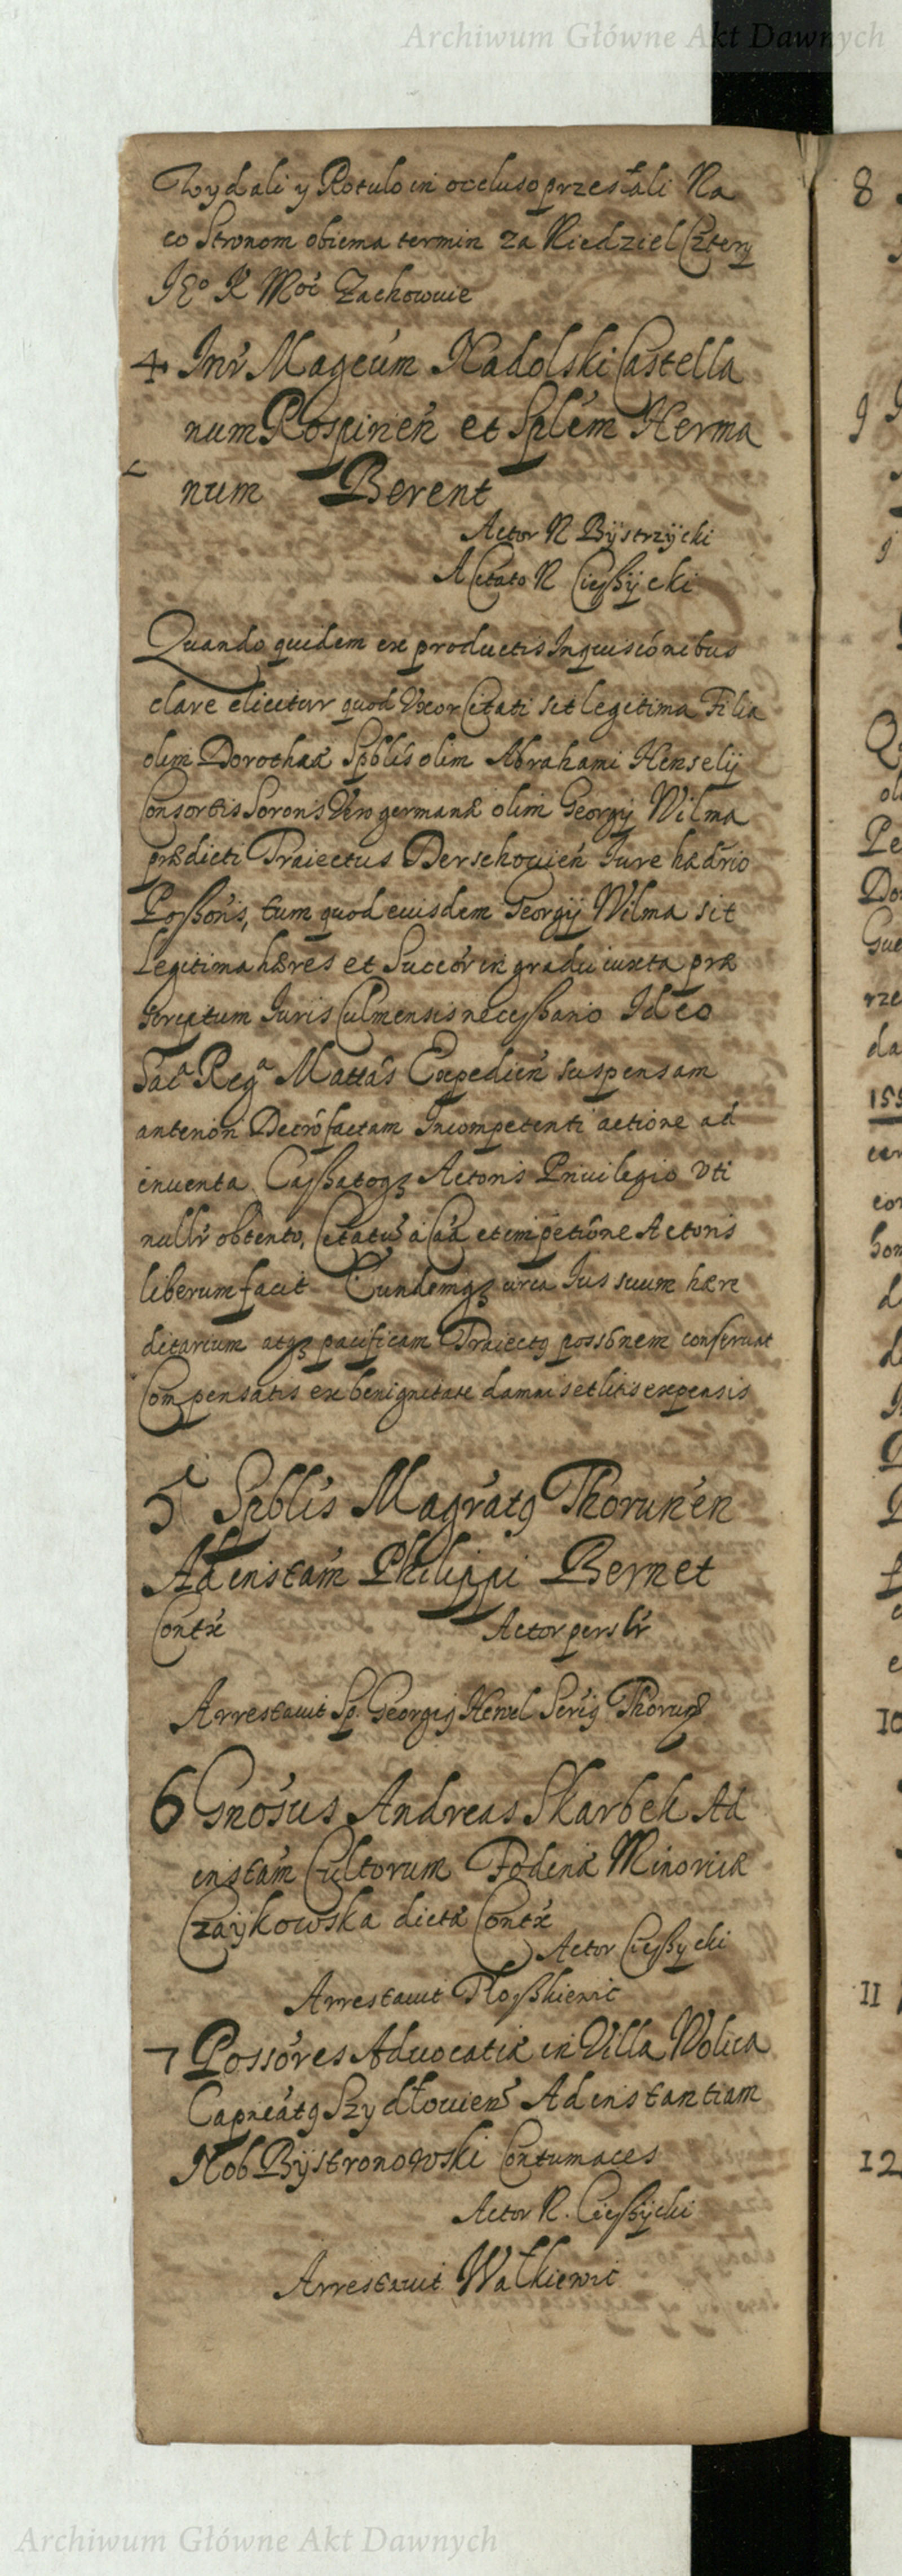 Archiwum Główne Akt Dawnych
Wydali y Rotulo in occluso przesłali Na
co Stronom obiema termin za Niedziel Cztery
JEo K Moć Zachowuie
4. Inr Magcum Nadolski Castella
num Rospirień et Splem Herma
num Berent
Actor N Bÿstrzÿcki
A Citato N Cießÿcki
Quando quidem ex productis Inquisiónibus
clare elicitur quod Uxor Citati sit legitima Filia
olim Dorotheæ Spblis olim Abrahami Henselÿ
Consortis Sororis Vero germanæ olim Georgÿ Wilma
prædicti Traiectus Derschouień Iure hædrio
Poßoris, tum quod eiusdem Georgÿ Wilma sit
Legitima hæres et Succór in gradu iuxta præ
scriptum Iuris Culmensis necessario Ideo
Saca Rega Mattas Expedień suspensam
anteriori Decro factam Incompetenti actione ad
inuenta Caßatoqz Actoris Priuilegio Uti
nullr obtento, Citatū à Cá et impetióne Actoris
liberum facit Eundemqz circa Ius suum hære
ditarium atqz pacificam Traiectq possónem conseruat
Compensatis ex benignitate damnis et litis expensis
5 Spblis Magrátq Thoruneń
Ad instam Philippi Bernet
Contx Actor perslr
Arrestauit Sp. Georgÿ Henel Seriq Thoruń
6 Gnósus Andreas Skarbek Ad
instám Cultorum Fodinæ Minoriæ
Czaÿkowska dictæ Contx
Actor Cießycki
Arrestauit Floßkiewic
7 Possóres Aduocatiæ in Villa Wolica
Capneátq Szydłouień Ad instantiam
Nob Bÿstronowski Contumaces
Actor N. Cießÿcki
Arrestauit Wałkiewic
8
9
10
11
12
Archiwum Główne Akt Dawnych